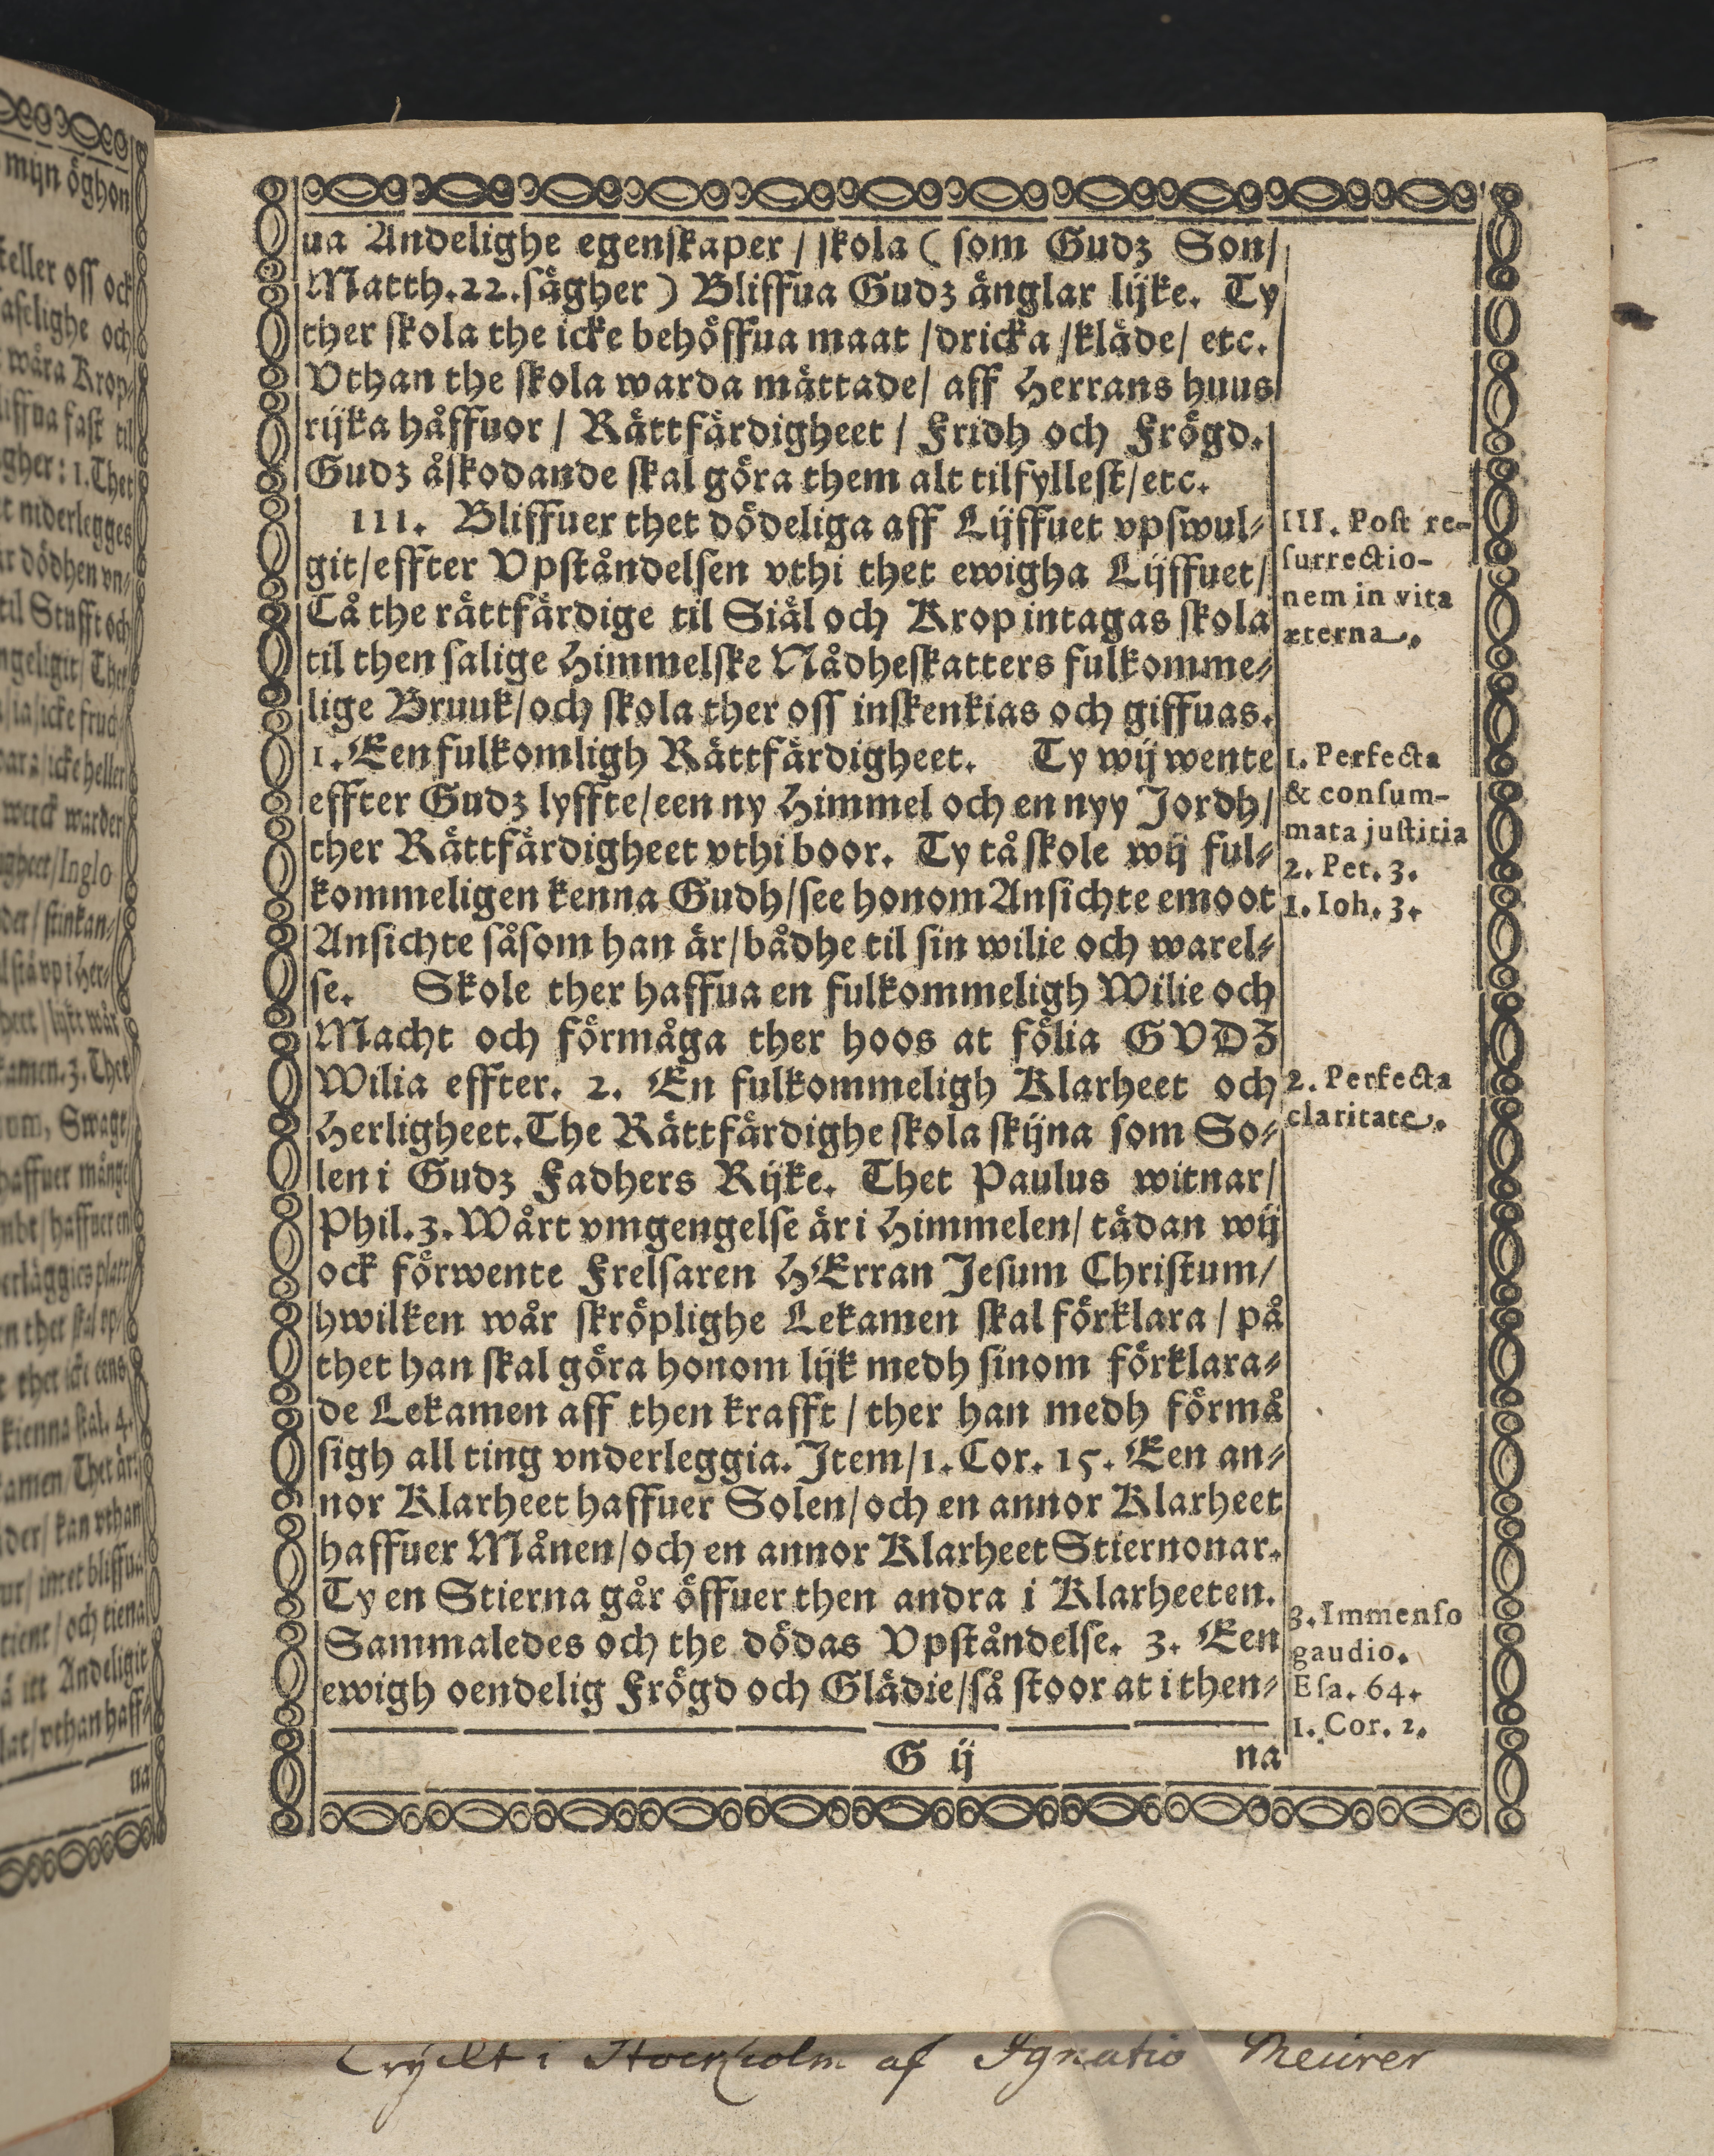 ua Andelighe egenſkaper / ſkola (ſom Gudz Son/
Matth.22.ſägher) Bliffua Gudz änglar lijke. Ty
ther ſkola the icke behöffua maat /dricka /kläde/ etc.
Vthan the ſkola warda mättade/ aff Herrans huus
rijka håffuor / Rättfärdigheet / Fridh och Frögd.
Gudz åſkodande ſkal göra them alt tilfylleſt/etc.
III. Bliffuer thet dödeliga aff Lijffuet vpſwul⸗
git/effter Vpſtåndelſen vthi thet ewigha Lijffuet/
Tå the rättfärdige til Siäl och Krop intagas ſkola
til then ſalige Himmelſke Nådheſkatters fulkomme⸗
lige Bruuk/och ſkola ther oſſ inſkenkias och giffuas.
1. Een fulkomligh Rättfärdigheet. Ty wij wente
effter Gudz lyffte/een ny Himmel och en nyy Jordh/
ther Rättfärdigheet vthi boor. Ty tå ſkole wij ful⸗
kommeligen kenna Gudh/ſee honom Anſichte emoot
Anſichte ſåſom han är/bådhe til ſin wilie och warel⸗
ſe. Skole ther haffua en fulkommeligh Wilie och
Macht och förmåga ther hoos at fölia GVDZ
Wilia effter. 2. En fulkommeligh Klarheet och
Herligheet.The Rättfärdighe ſkola ſkijna ſom So⸗
len i Gudz Fadhers Rijke. Thet Paulus witnar/
Phil.3.Wårt vmgengelſe är i Himmelen/ tädan wij
ock förwente Frelſaren HErran Jeſum Chriſtum/
hwilken wår ſkröplighe Lekamen ſkal förklara / på
thet han ſkal göra honom lijk medh ſinom förklara⸗
de Lekamen aff then krafft / ther han medh förmå
ſigh all ting vnderleggia. Jtem/1. Cor. 15. Een an⸗
nor Klarheet haffuer Solen/och en annor Klarheet
haffuer Månen/och en annor Klarheet Stiernonar.
Ty en Stierna går öffuer then andra i Klarheeten.
Sammaledes och the dödas Vpſtåndelſe. 3. Een
ewigh oendelig Frögd och Glädie/ſå ſtoor at i then⸗
G ij na
III. Poſt re-
ſurrectio-
nem in vita
æterna.
1. Perfecta
& conſum-
mata juſtitia
2. Pet. 3.
1. Ioh. 3.
2. Perfecta
claritate.
3. Immenſo
gaudio.
Eſa. 64.
1. Cor. 2.
Tryckt i Stockholm af Ignatio Meurer